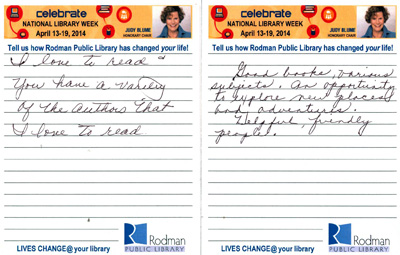 celebrate
NATIONAL LIBRARY WEEK
April 13-19, 2014
JUDY BLUME
HONORARY CHAIR
Tell us how Rodman Public Library has changed your life!
I love to read
You have a variety
of the Authors that
I love to read
LIVES CHANGE@your library
Rodman
PUBLIC LIBRARY
celebrate
NATIONAL LIBRARY WEEK
April 13-19, 2014
JUDY BLUME
HONORARY CHAIR
Tell us how Rodman Public Library has changed your life!
Good books, various
subjects. An opportunity
to explore new places
and adventures.
Helpful, friendly
people!
LIVES CHANGE@your library
Rodman
PUBLIC LIBRARY